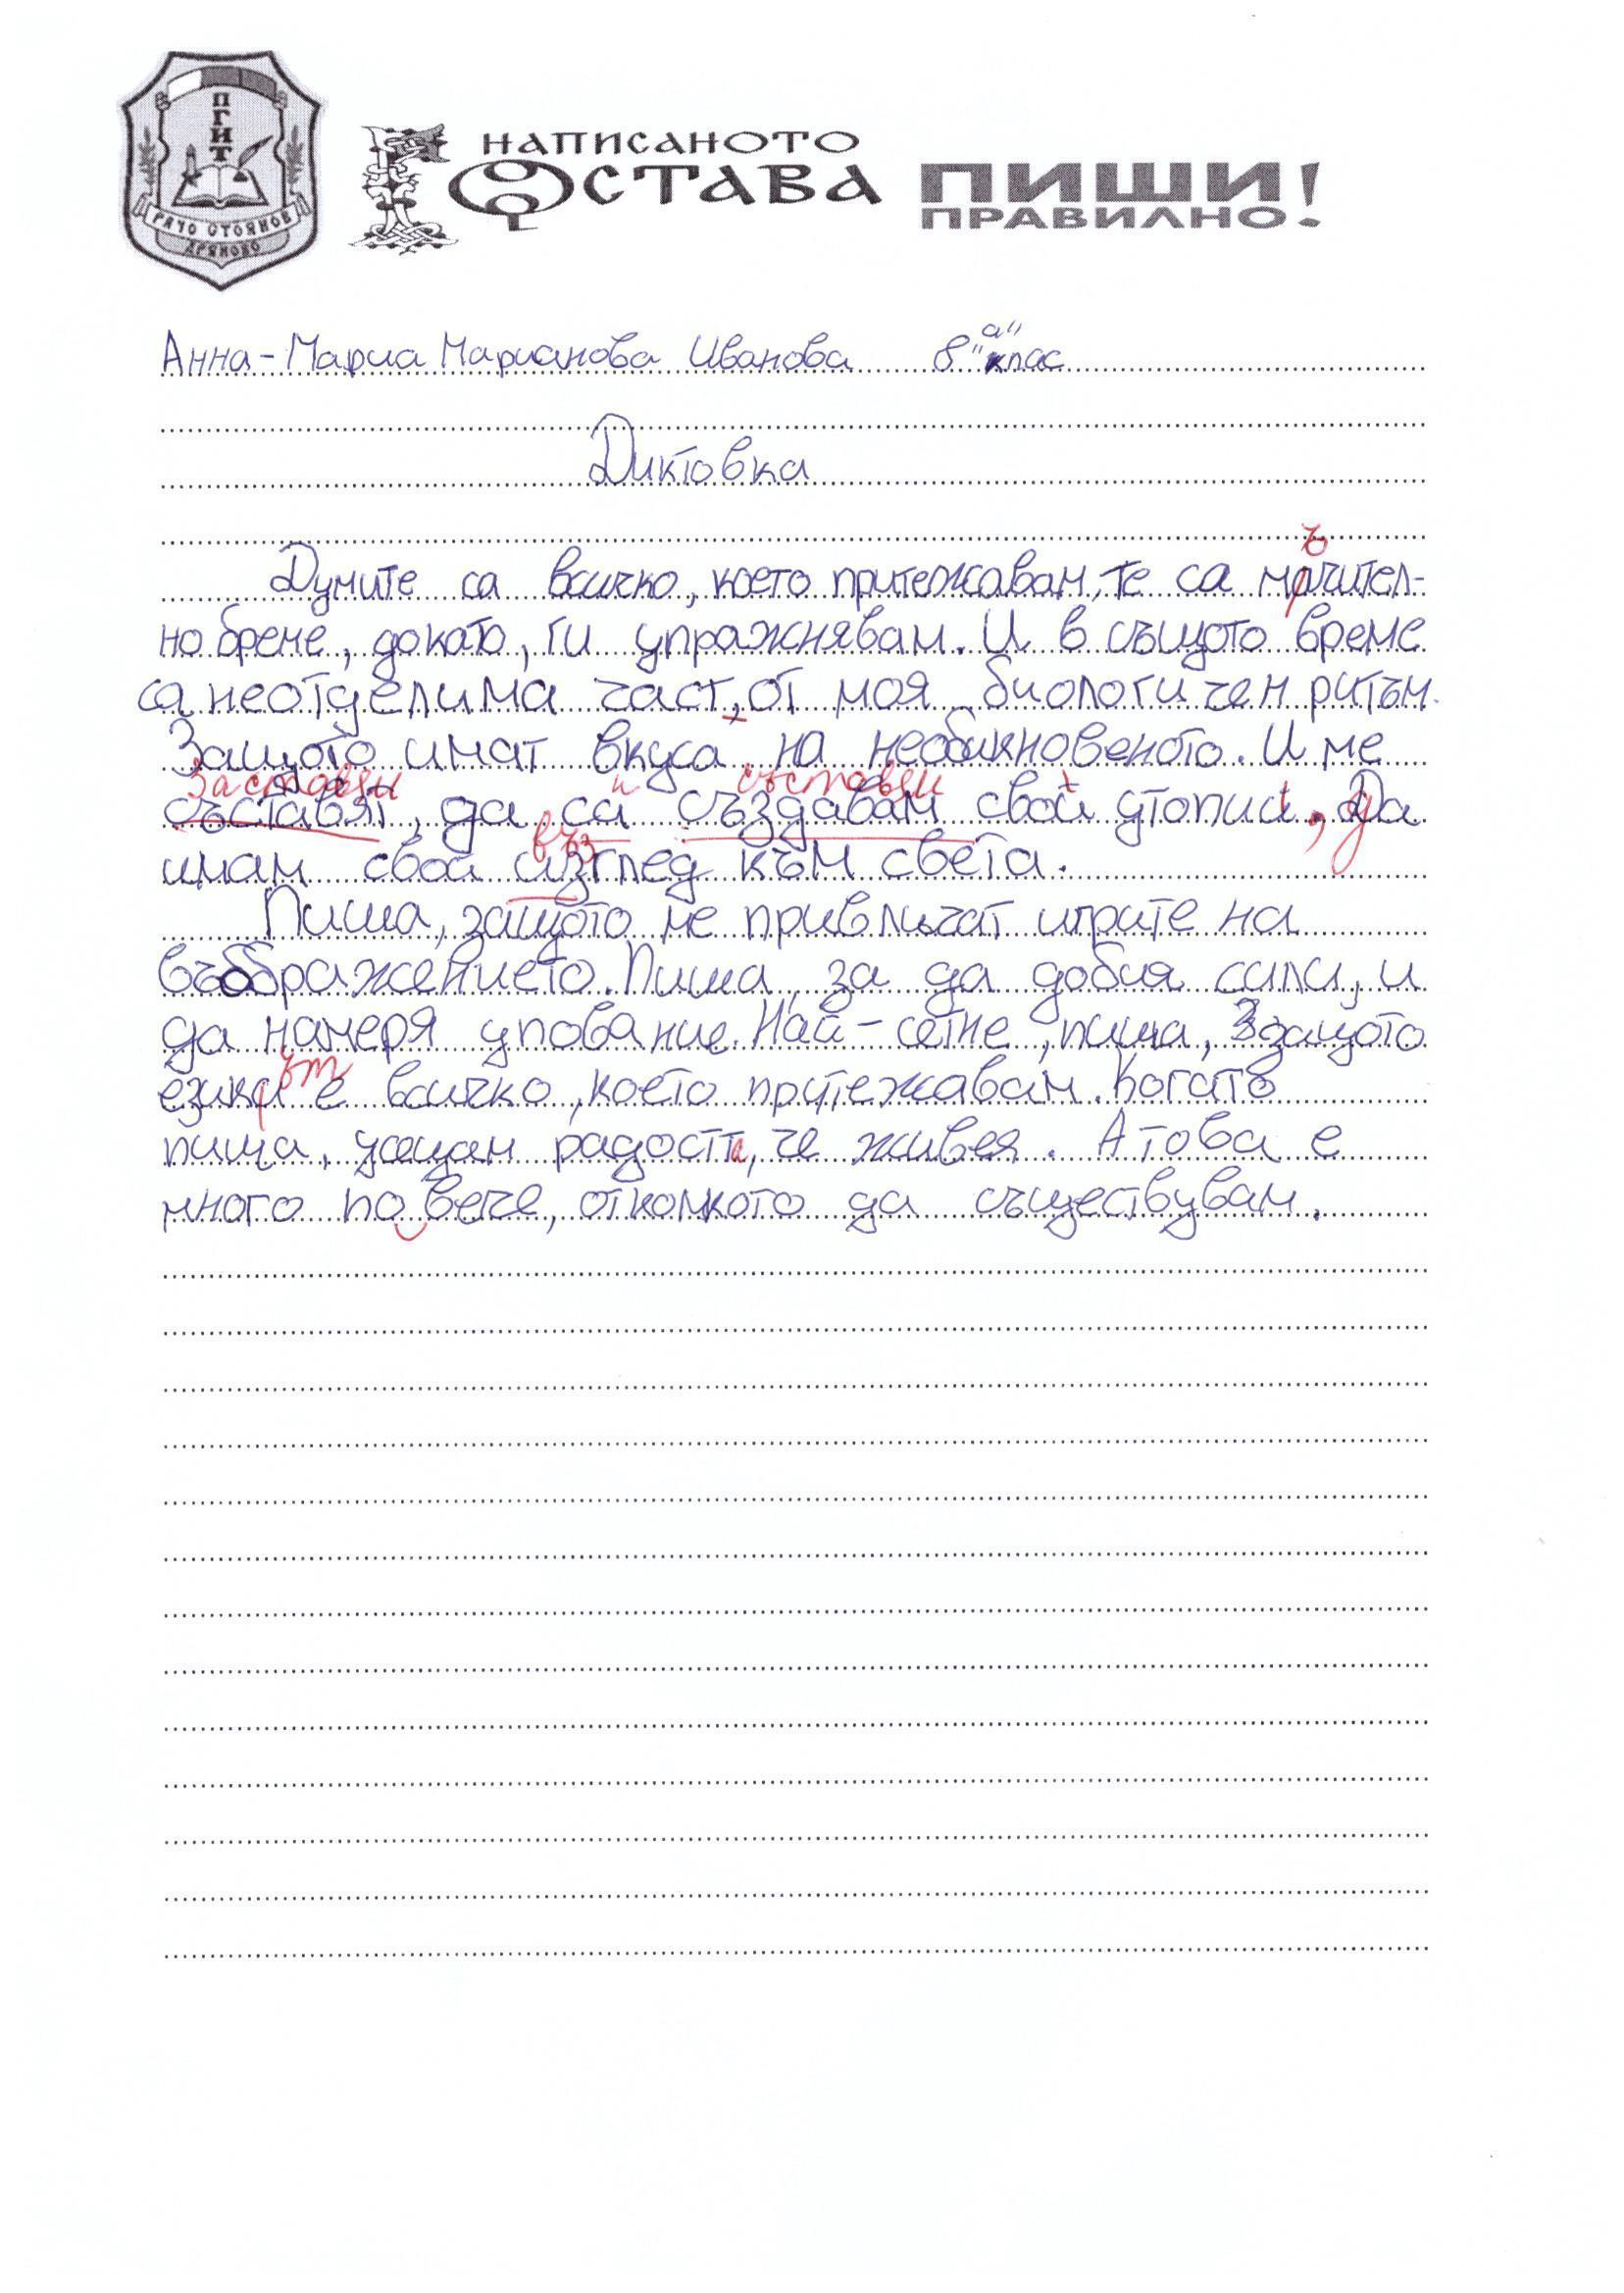 ПГИТ
РАЧО СТОЯНОВ
ДРЯНОВО
НАПИСАНОТО
ОСТАВА
ПИШИ
ПРАВИЛНО!
Анна-Мариа Марианова Иванова 8 "а" клас
Диктовка
ъ
Думите са всичко, което притежавам, те са мачител-
но бреме, докато, ги упражнявам. И в същото време
са неотделима част, от моя биологичен ритъм.
Защото имат вкуса на необикновеното. И ме
заставям и съставям
съставят, да са създавам свой утопии, Да
въз
имам свой изглед към света.
Пиша, защото ме привличат игрите на
въображението. Пиша, за да добия сили, и
да намеря упование. Най-сетне, пиша, защото
ът
езика е всичко, което притежавам. Когато
пиша, усещам радостта, че живея. А това е
много по вече, отколкото да съществувам.